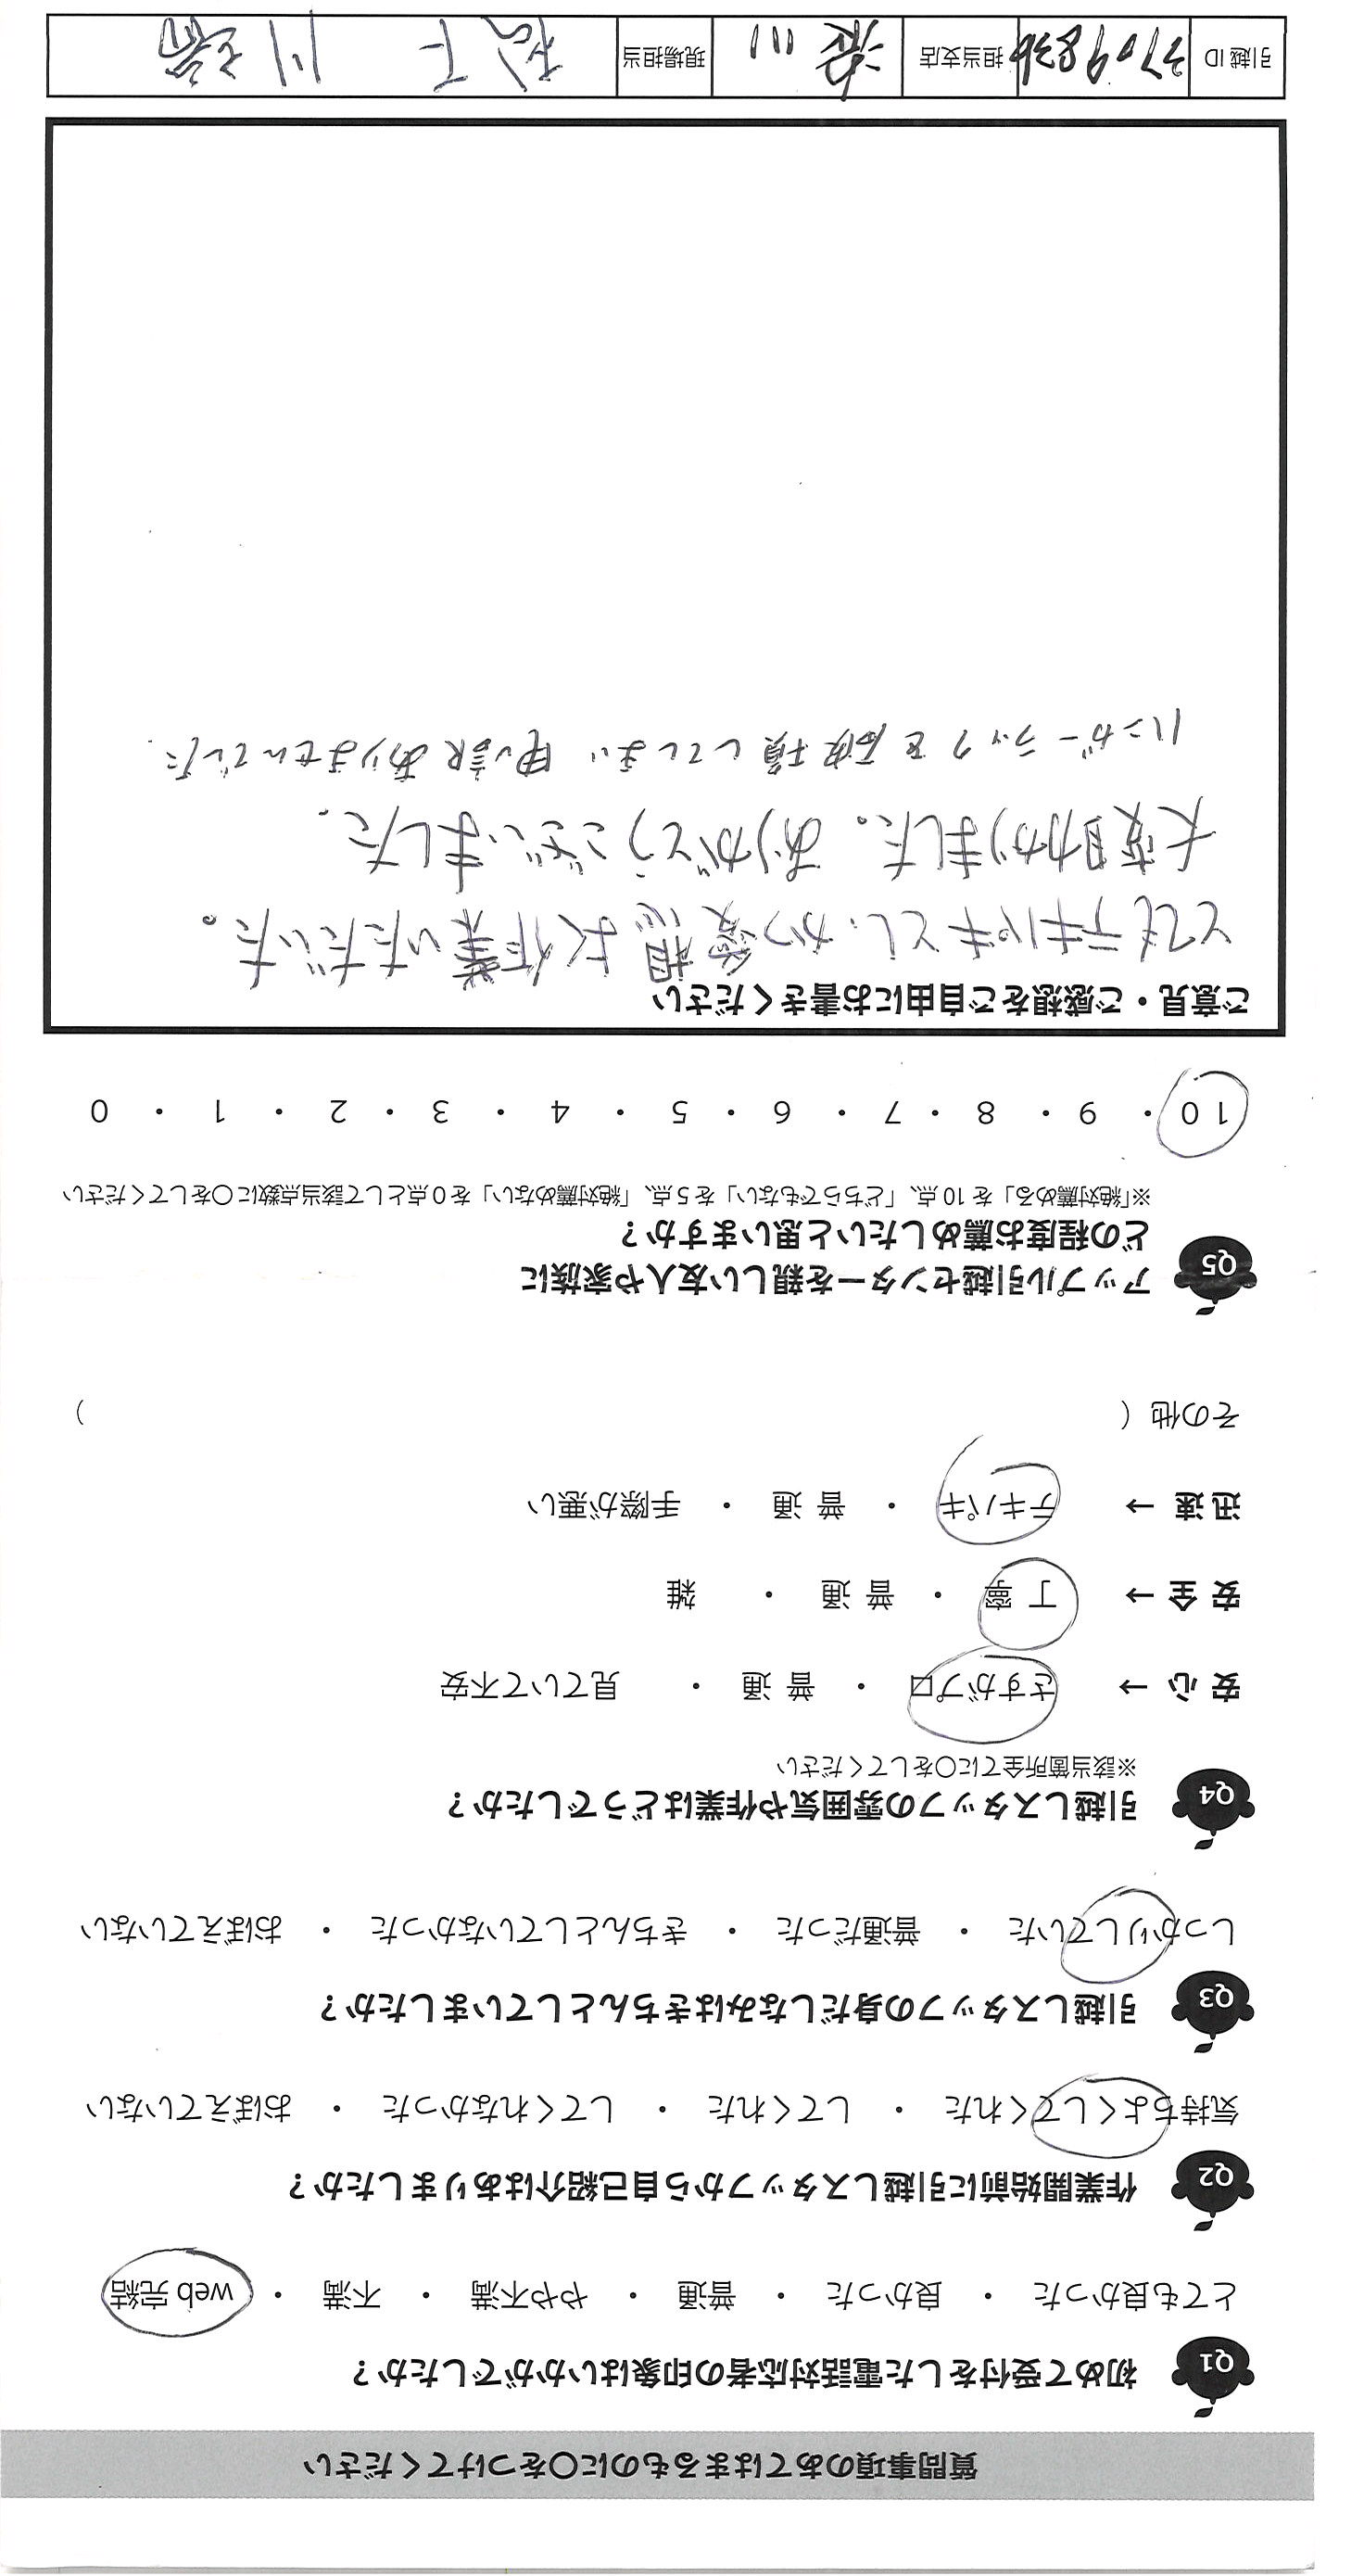 質問事項のあてはまるものに〇をつけてください
Q1 初めて受付をした電話対応者の印象はいかがでしたか？
とても良かった ・ 良かった ・ 普通 ・ やや不満 ・ 不満 ・ web 完結
Q2 作業開始前に引越しスタッフから自己紹介はありましたか？
気持ちよくしてくれた ・ してくれた ・ してくれなかった ・ おぼえていない
Q3 引越しスタッフの身だしなみはきちんとしていましたか？
しっかりしていた ・ 普通だった ・ きちんとしていなかった ・ おぼえていない
Q4 引越しスタッフの雰囲気や作業はどうでしたか？
※該当箇所全てに〇をしてください
安 心 → さすがプロ ・ 普 通 ・ 見ていて不安
安 全 → 丁 寧 ・ 普 通 ・ 雑
迅 速 → テキパキ ・ 普 通 ・ 手際が悪い
その他（ ）
Q5 アップル引越センターを親しい友人や家族に
どの程度お薦めしたいと思いますか？
※「絶対薦める」を 10 点、「どちらでもない」を 5 点、「絶対薦めない」を 0 点として該当点数に〇をしてください
10 ・ 9 ・ 8 ・ 7 ・ 6 ・ 5 ・ 4 ・ 3 ・ 2 ・ 1 ・ 0
ご意見・ご感想をご自由にお書きください
とてもテキパキとし、かつ愛想よく作業いただいた。
大変助かりました。ありがとうございました。
ハンガーラックを破損してしまい 申し訳ありませんでした.
引越 ID 3709836 担当支店 川 現場担当 松下 川端